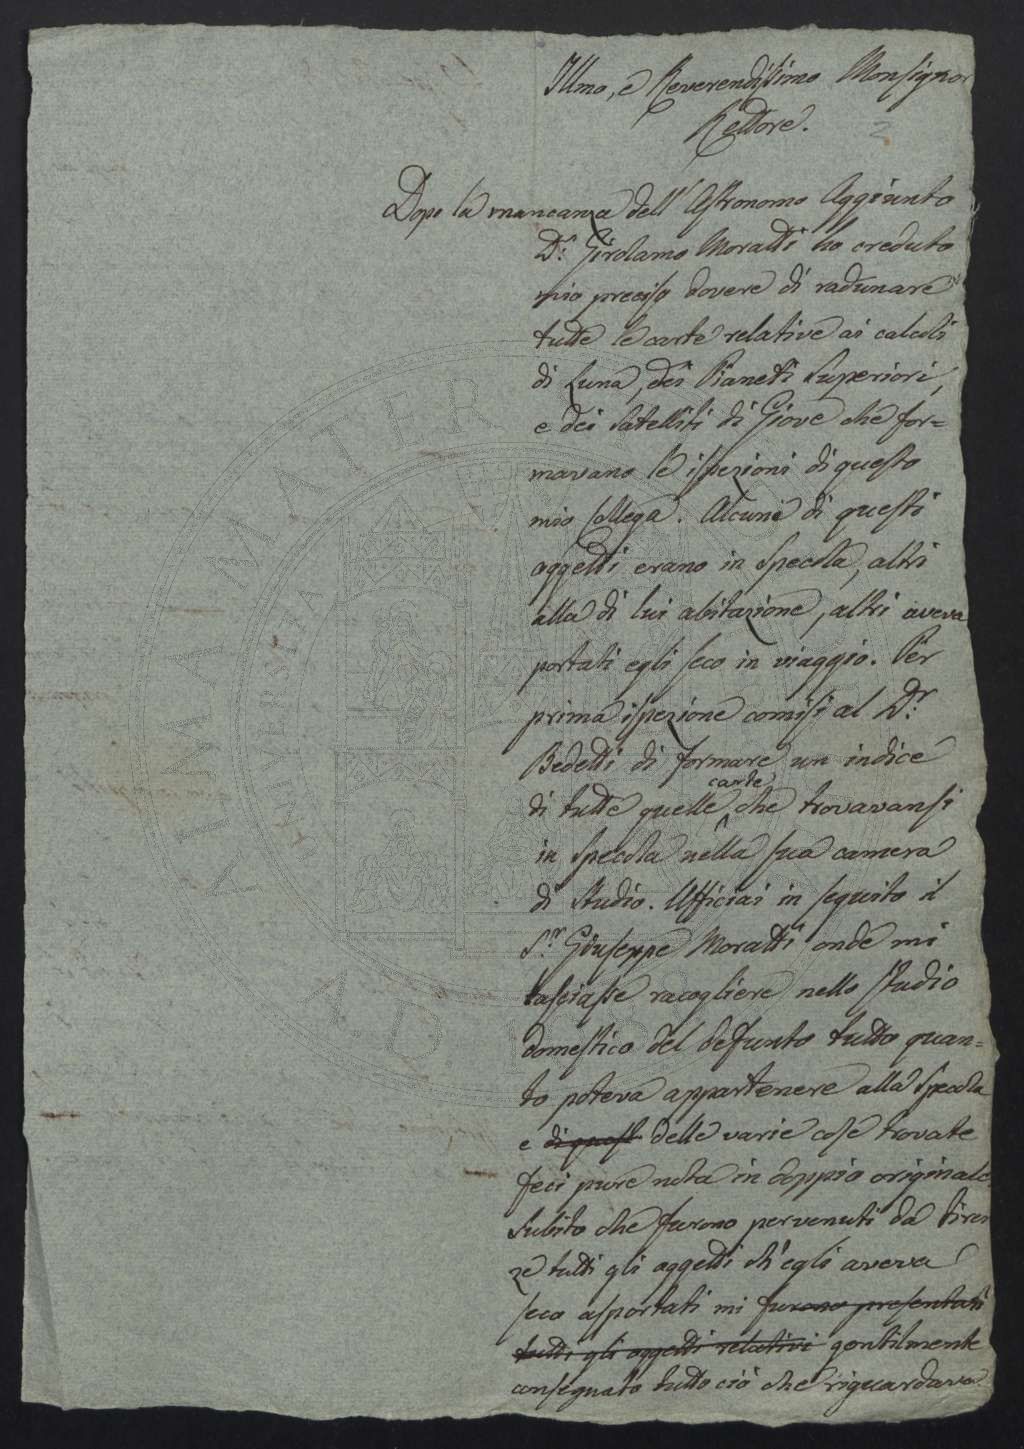 Illmo, e Reverendissimo Monsignor
Rettore.
2
Dopo la mancanza dell'Astronomo Aggiunto
Dr. Girolamo Moratti ho creduto
mio preciso dovere di radunare
tutte le carte relative ai calcoli
di Luna, dei Pianeti Superiori,
e dei Satelliti di Giove che for=
mavano le ispezioni di questo
mio Collega. Alcuni di questi
oggetti erano in Specola, altri
alla di lui abitazione, altri aveva
portati egli seco in viaggio. Per
prima ispezione comisi al Dr.
Bedetti di formare un indice
carte
di tutte quelle che trovavansi
in Specola nella sua camera
di Studio. Ufficiai in seguito il
Sr. Giuseppe Moratti onde mi
lasciasse racogliere nello studio
domestico del defunto tutto quan=
to poteva appartenere alla Specola
e di quest delle varie cose trovate
feci pure nota in doppio originale
Subito che furono pervenuti da Firen
ze tutti gli oggetti ch'egli aveva
seco asportati mi furono presentati
tutti gli oggetti relativi gentilmente
consegnato tutto ciò che riguardava
ALMA MATER
UNIVERSITA
A.D. 1088